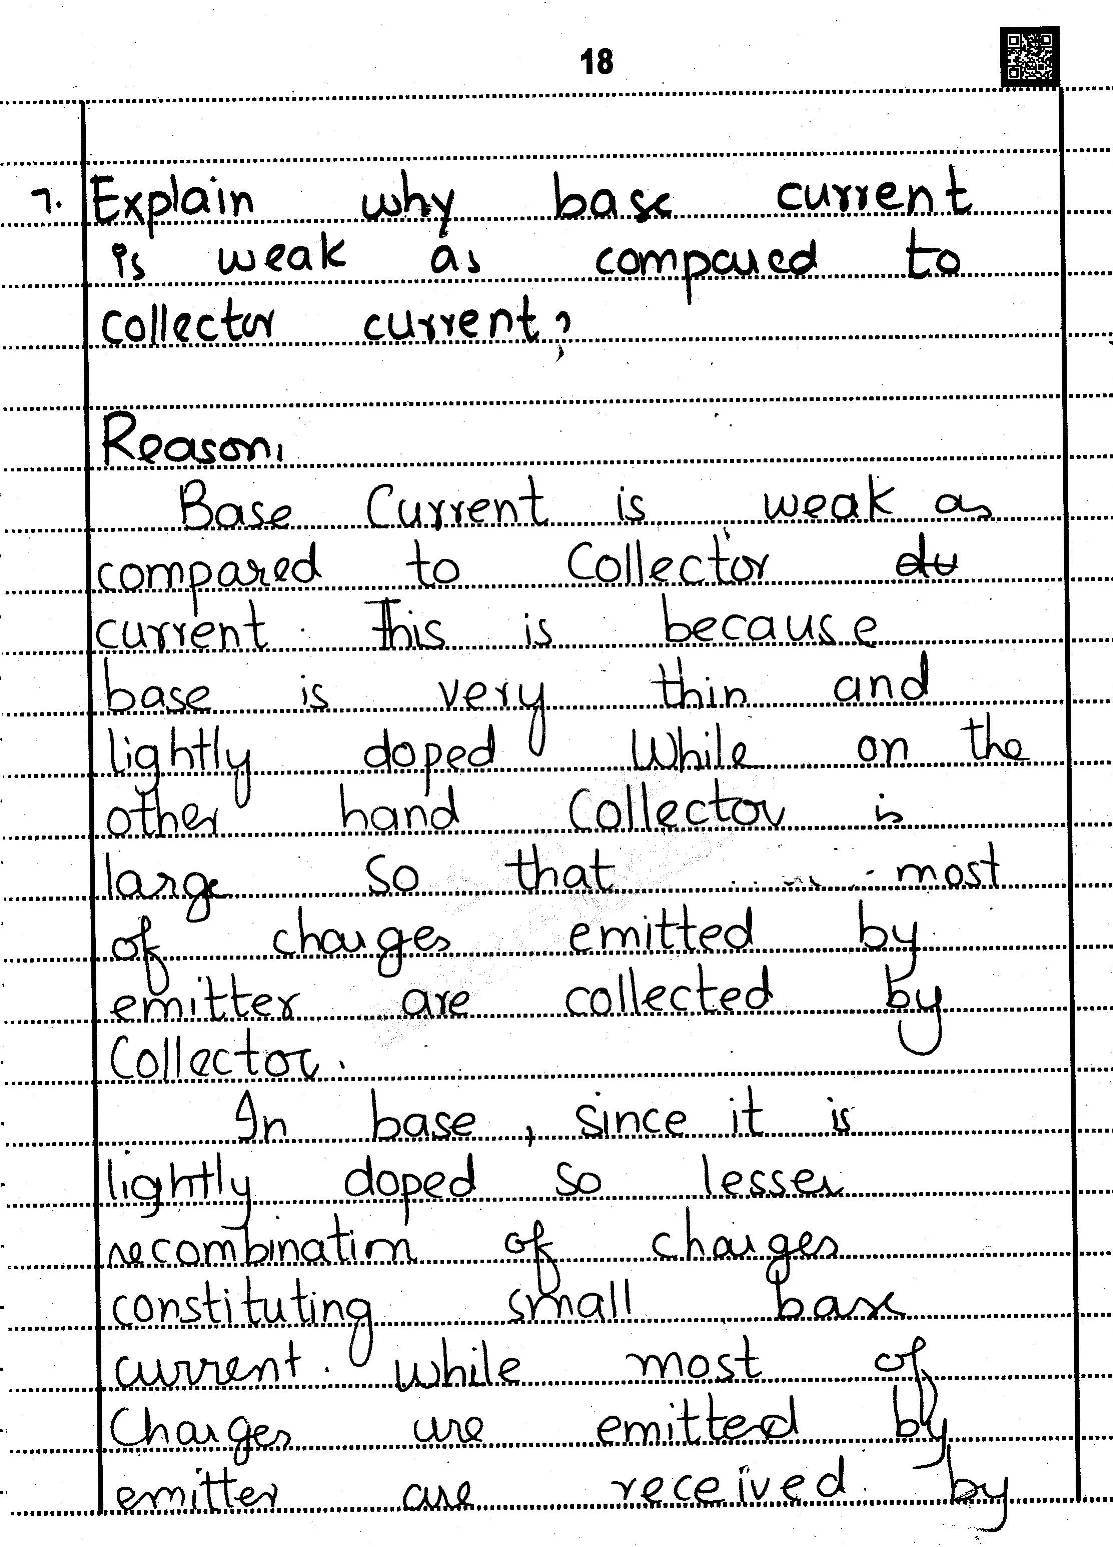 18
7. Explain why base current
is weak as compared to
collector current?
Reason,
Base Current is weak as
compared to Collector du
current. This is because
base is very thin and
lightly doped While on the
other hand Collector is
large so that most
of charges emitted by
emitter are collected by
Collector.
In base, since it is
lightly doped so lesser
recombination of charges
constituting small base
current. while most of
Charges are emitted by
emitter are received by